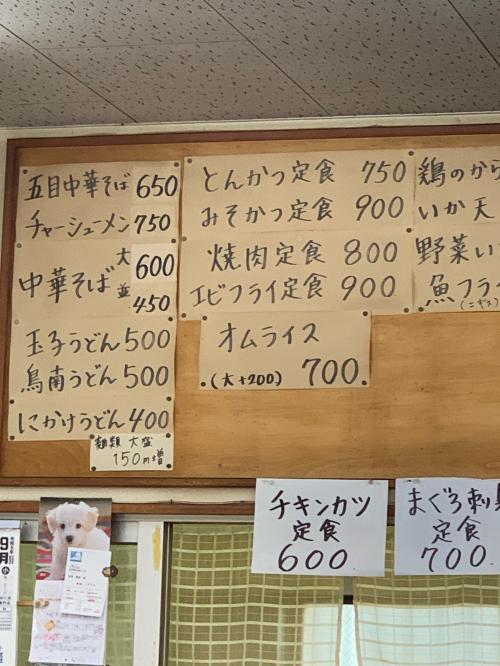 五目中華そば 650
チャーシューメン 750
中華そば 大 600
並 450
玉子うどん 500
鳥南うどん 500
にかけうどん 400
麺類 大盛
150円増
とんかつ定食 750
みそかつ定食 900
焼肉定食 800
エビフライ定食 900
オムライス
(大+200) 700
鶏のから
いか天
野菜い
魚フラ
チキンカツ
定食
600
まぐろ刺
定食
700
9月
小